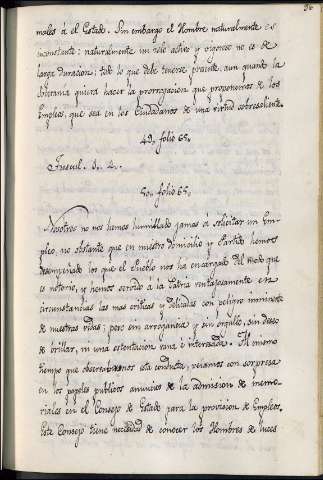 36
males á el Estado. Sin embargo el Hombre naturalmente es
inconstante: naturalmente un zelo activo y vigoroso no es de
larga duracion: todo lo que debe tenerse presente, aun quando la
Soberania quiera hacer la prorrogacion que proponemos de los
Empleos, que sea en los Ciudadanos de una virtud sobresaliente.
49. folio 65.
50. folio 65.
Nosotros no nos hemos humillado jamas á solicitar un Em-
pleo, no obstante que en nuestro domicilio y Partido hemos
desempeñado los que el Pueblo nos ha encargado del modo que
es notorio, y hemos servido á la Patria ventajosamente en
circunstancias las mas criticas y delicadas con peligro inminente
de nuestras vidas; pero sin arrogancia y sin orgullo, sin deseo
de brillar, ni una ostentacion vana é interesada. Al mismo
tiempo que observabamos esta conducta, veiamos con sorpresa
en los papeles publicos anuncios de la admision de memo-
riales en el Consejo de Estado para la provision de Empleos.
Este Consejo tiene necesidad de conocer los Hombres de luces